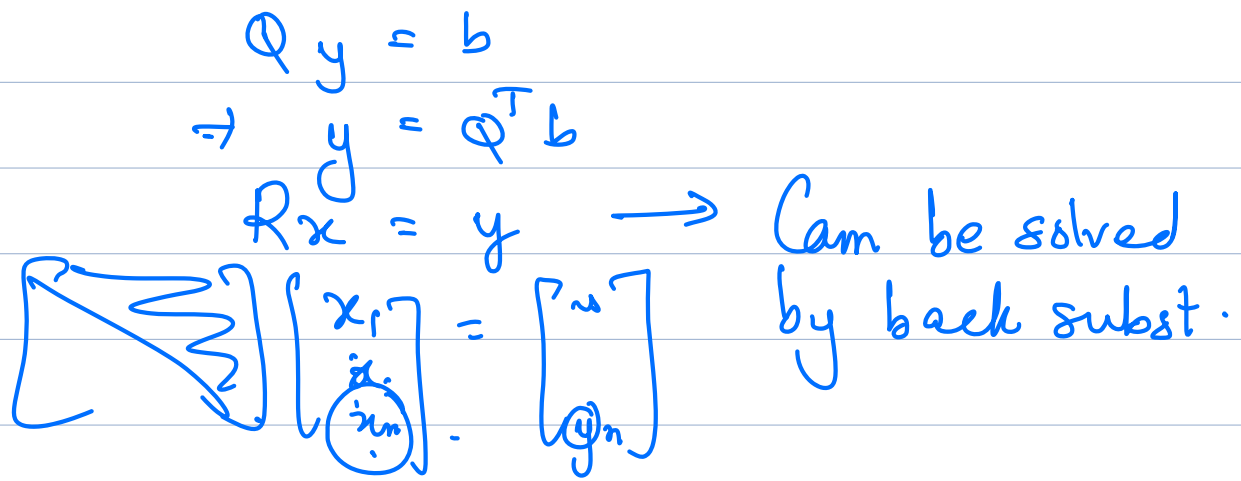 Q y = b
⇒ y = Qᵀ b
Rx = y ⟶ Can be solved
by back subst.
[ ] [ x₁ : xₙ ] = [ yₙ ]